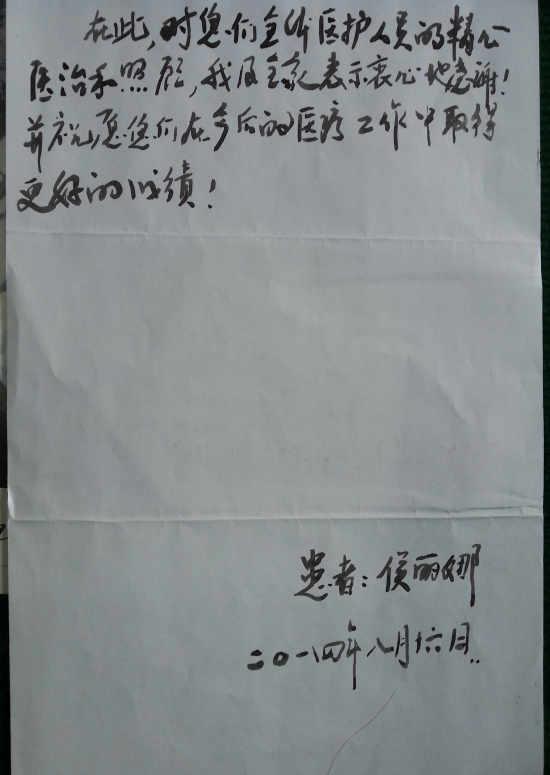 在此，对您们全体医护人员的精心
医治和照顾，我及全家表示衷心地感谢！
并祝愿您们在今后的医疗工作中取得
更好的成绩！
患者：侯丽娜
二〇一四年八月十六日